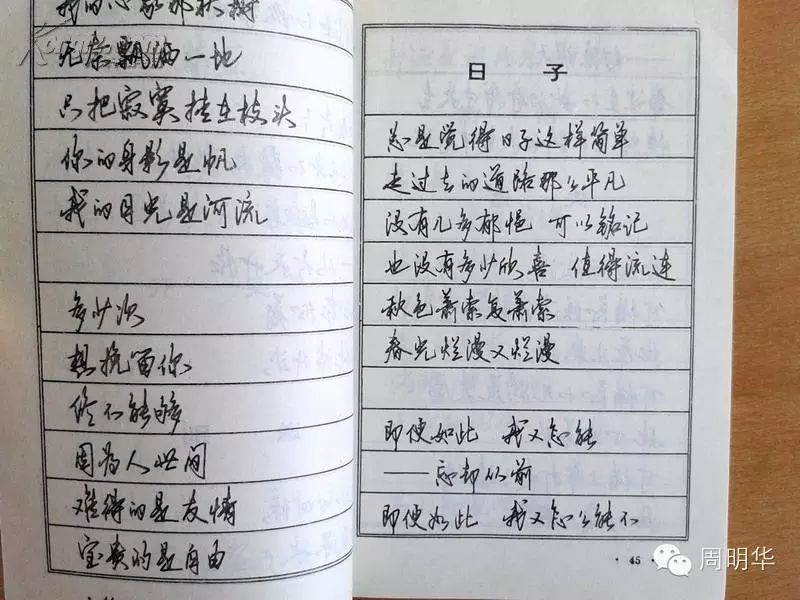 我的心象那秋树
无奈飘洒一地
只把寂寞挂在枝头
你的身影是帆
我的目光是河流
多少次
想挽留你
终不能够
因为人世间
难得的是友情
宝贵的是自由
日 子
总是觉得日子这样简单
走过去的道路那么平凡
没有几多郁悒 可以铭记
也没有多少欣喜 值得流连
秋色萧索复萧索
春光烂漫又烂漫
即使如此 我又怎能
——忘却从前
即使如此 我又怎么能不
·45·
周明华